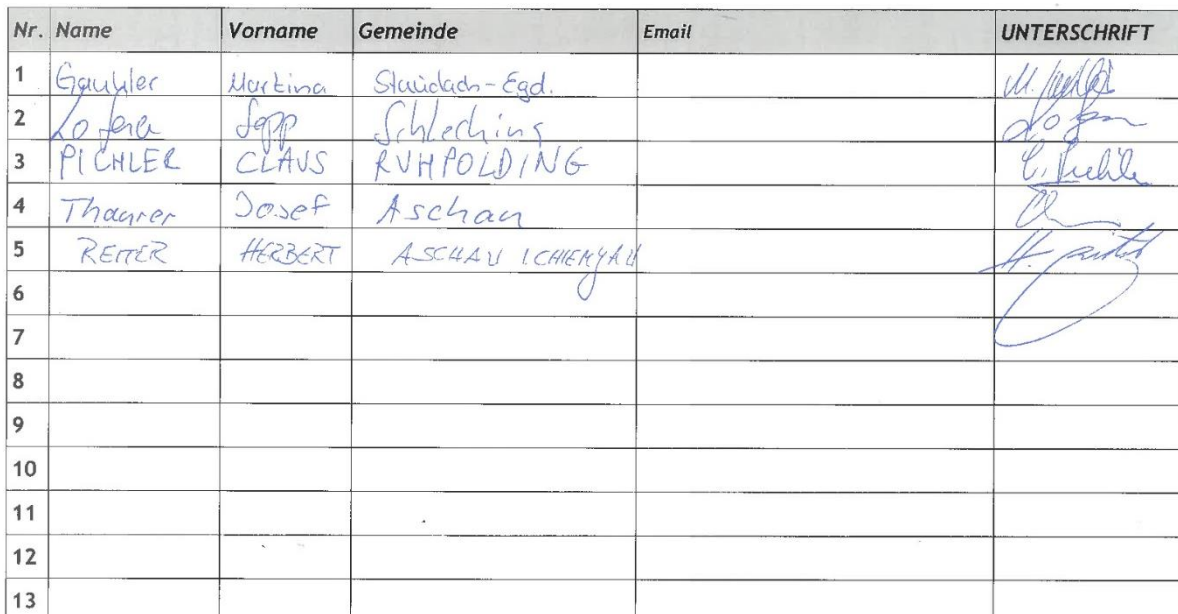 Nr. Name Vorname Gemeinde Email UNTERSCHRIFT
1 Gauhler Martina Staudach-Egd.
2 Lofera Sepp Schleching
3 PICHLER CLAUS RUHPOLDING C. Pichler
4 Thaurer Josef Aschau
5 REITER HERBERT ASCHAU I CHIEMGAU
6
7
8
9
10
11
12
13